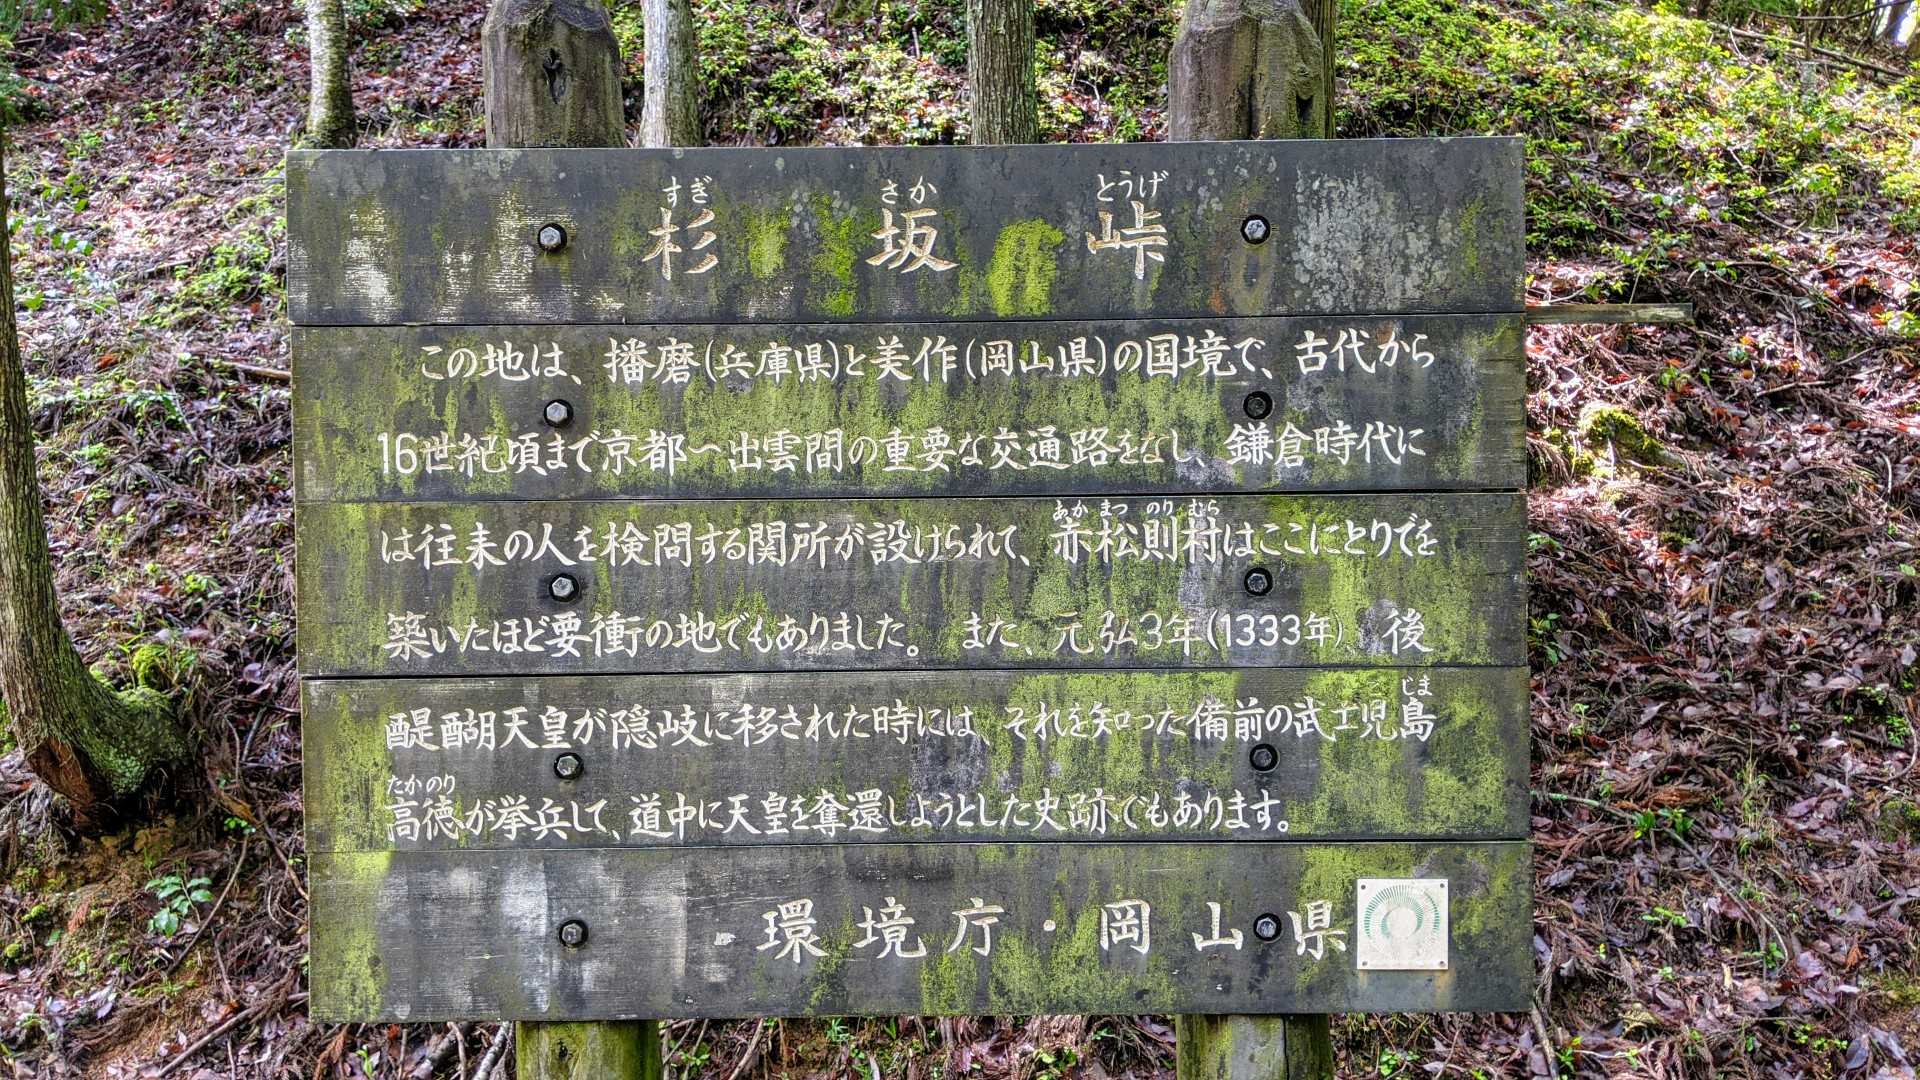 すぎ さか とうげ
杉坂峠
この地は、播磨(兵庫県)と美作(岡山県)の国境で、古代から
16世紀頃まで京都〜出雲間の重要な交通路をなし、鎌倉時代に
あか まつ のり むら
は往来の人を検問する関所が設けられて、赤松則村はここにとりでを
築いたほど要衝の地でもありました。また、元弘3年(1333年)、後
じま
醍醐天皇が隠岐に移された時には、それを知った備前の武士児島
たかのり
高徳が挙兵して、道中に天皇を奪還しようとした史跡でもあります。
環境庁・岡山県